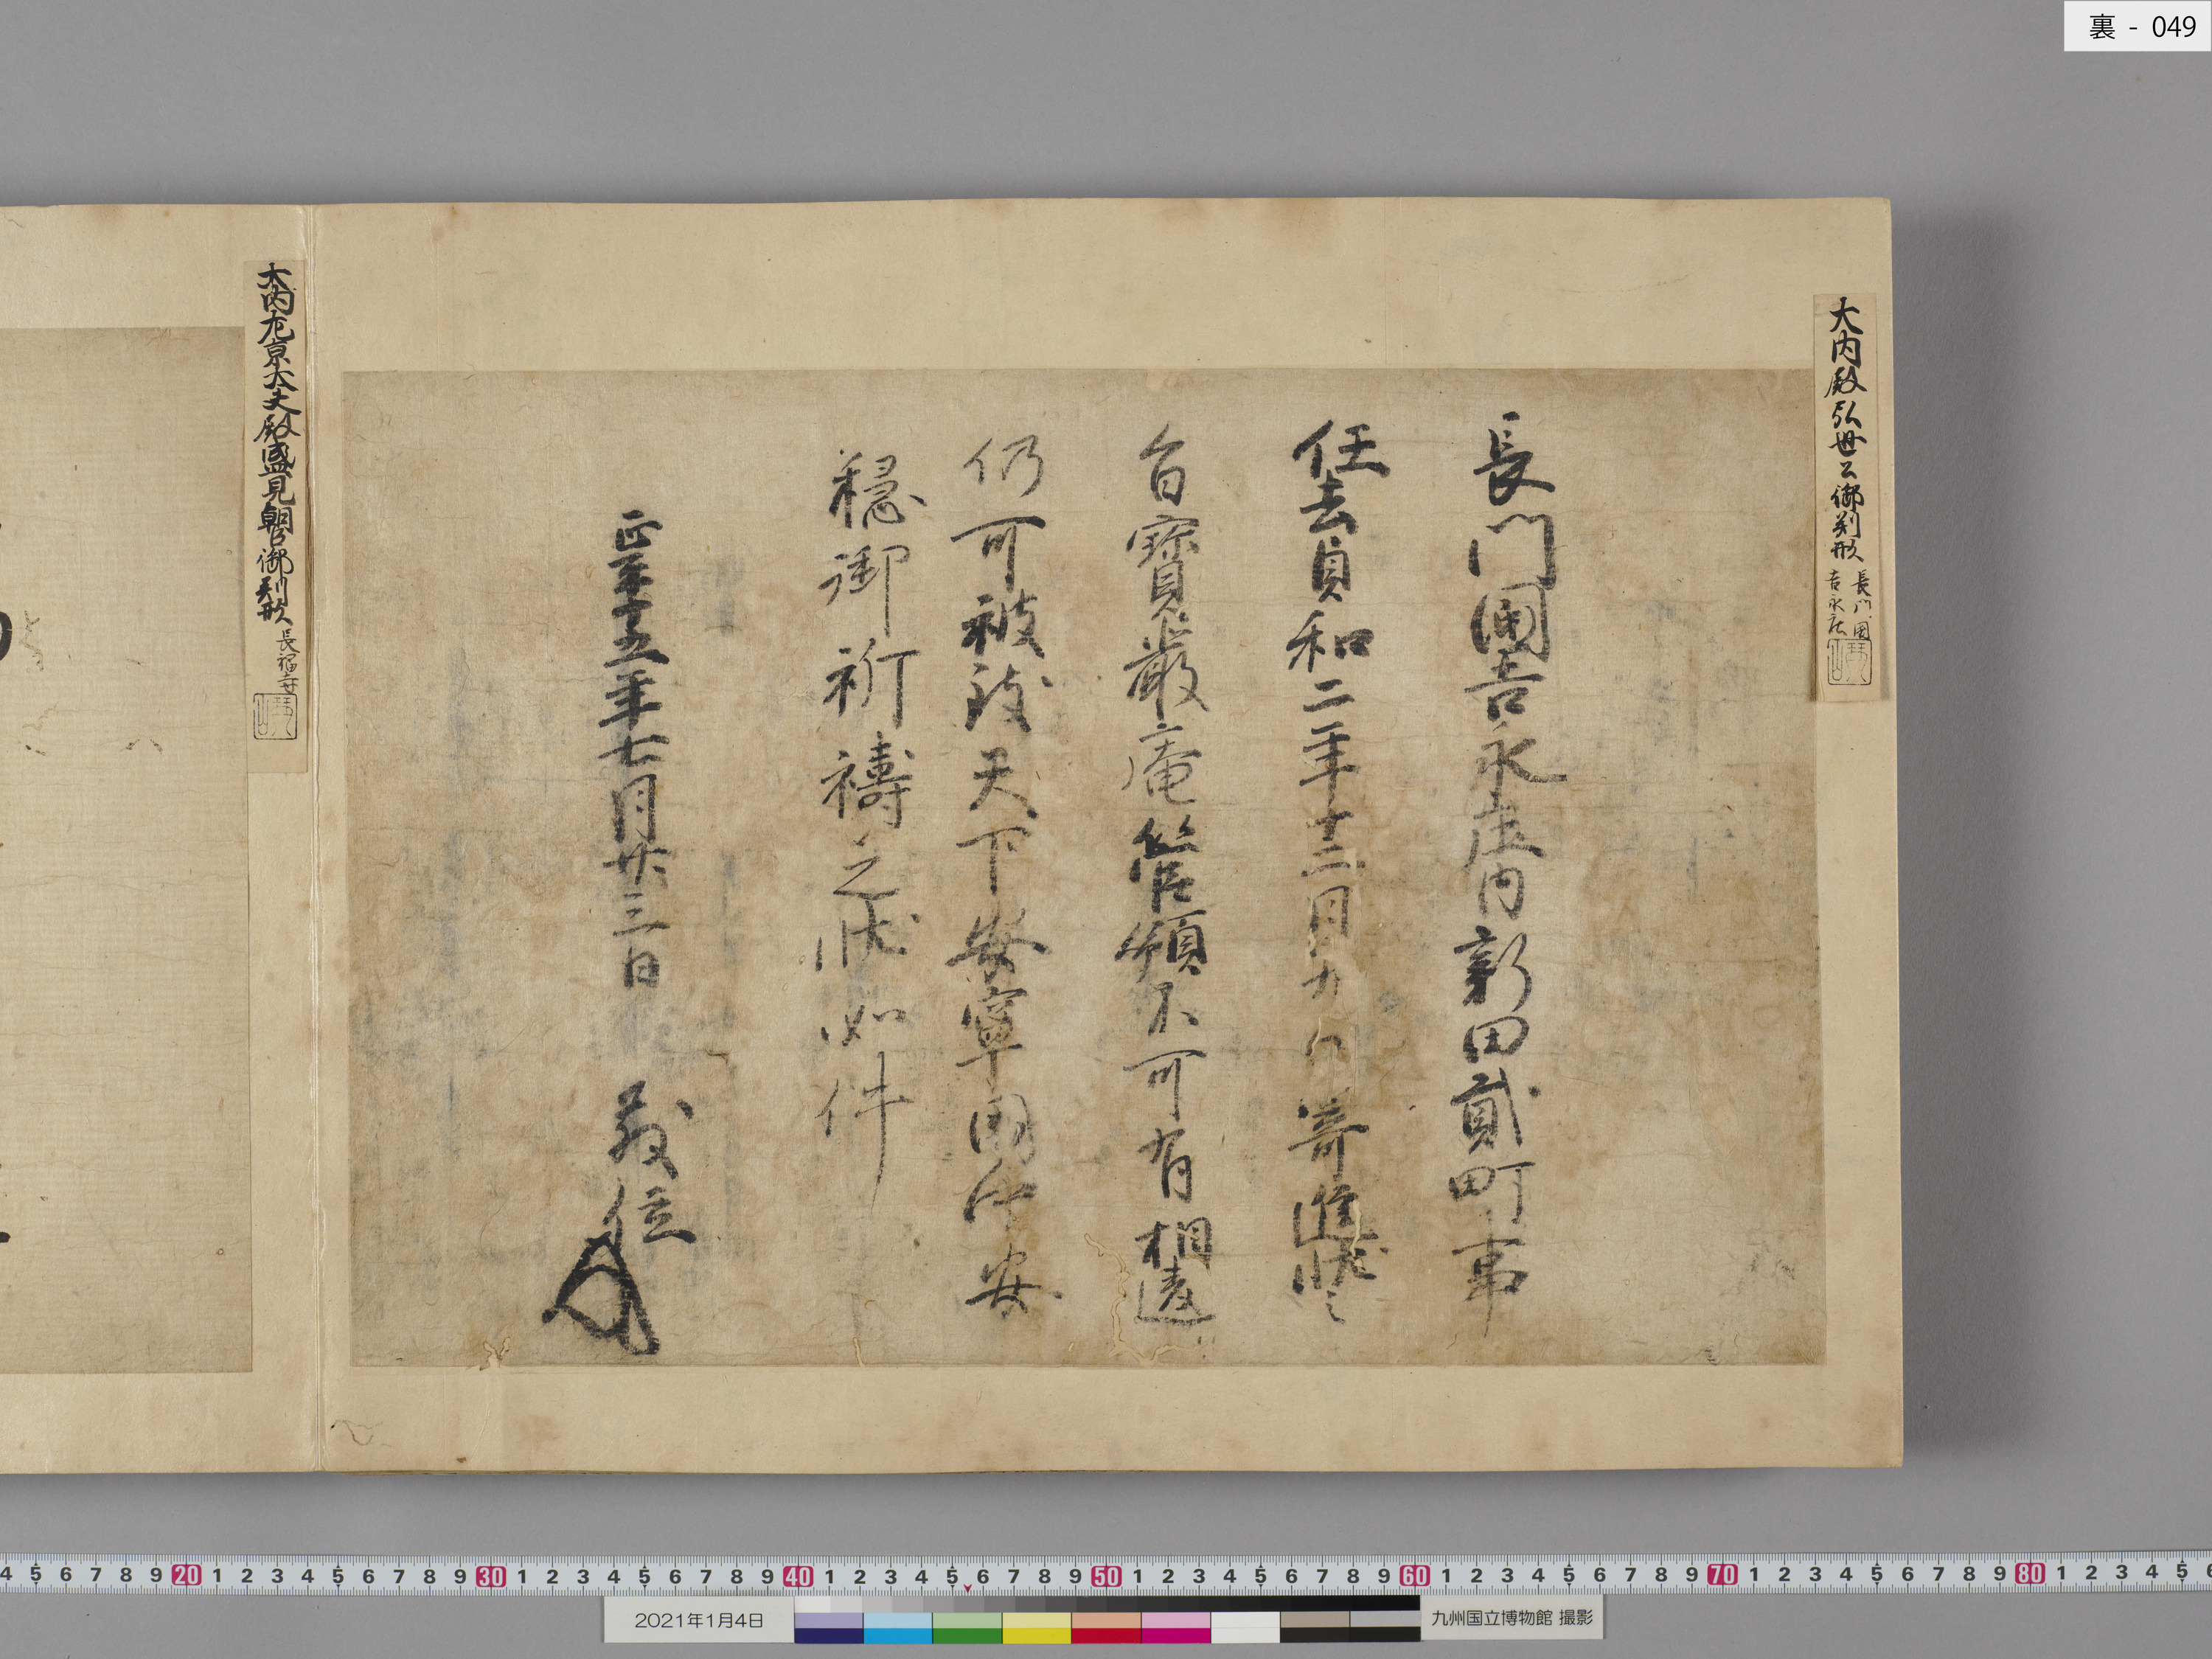 裏 - 049
大内殿弘世公御判形 長門国吉永庄
長門國吉永庄内新田貳町事
任去貞和二年十二月九日寄進状之
旨寶嚴庵管領不可有相違
仍可被致天下安寧國中安
穏御祈禱之状如件
正平十五年七月廿三日 散位
大内左京大夫殿盛見朝臣御判形 長福寺
4 5 6 7 8 9 20 1 2 3 4 5 6 7 8 9 30 1 2 3 4 5 6 7 8 9 40 1 2 3 4 5 6 7 8 9 50 1 2 3 4 5 6 7 8 9 60 1 2 3 4 5 6 7 8 9 70 1 2 3 4 5 6 7 8 9 80 1 2 3 4 5 6
2021年1月4日
九州国立博物館 撮影